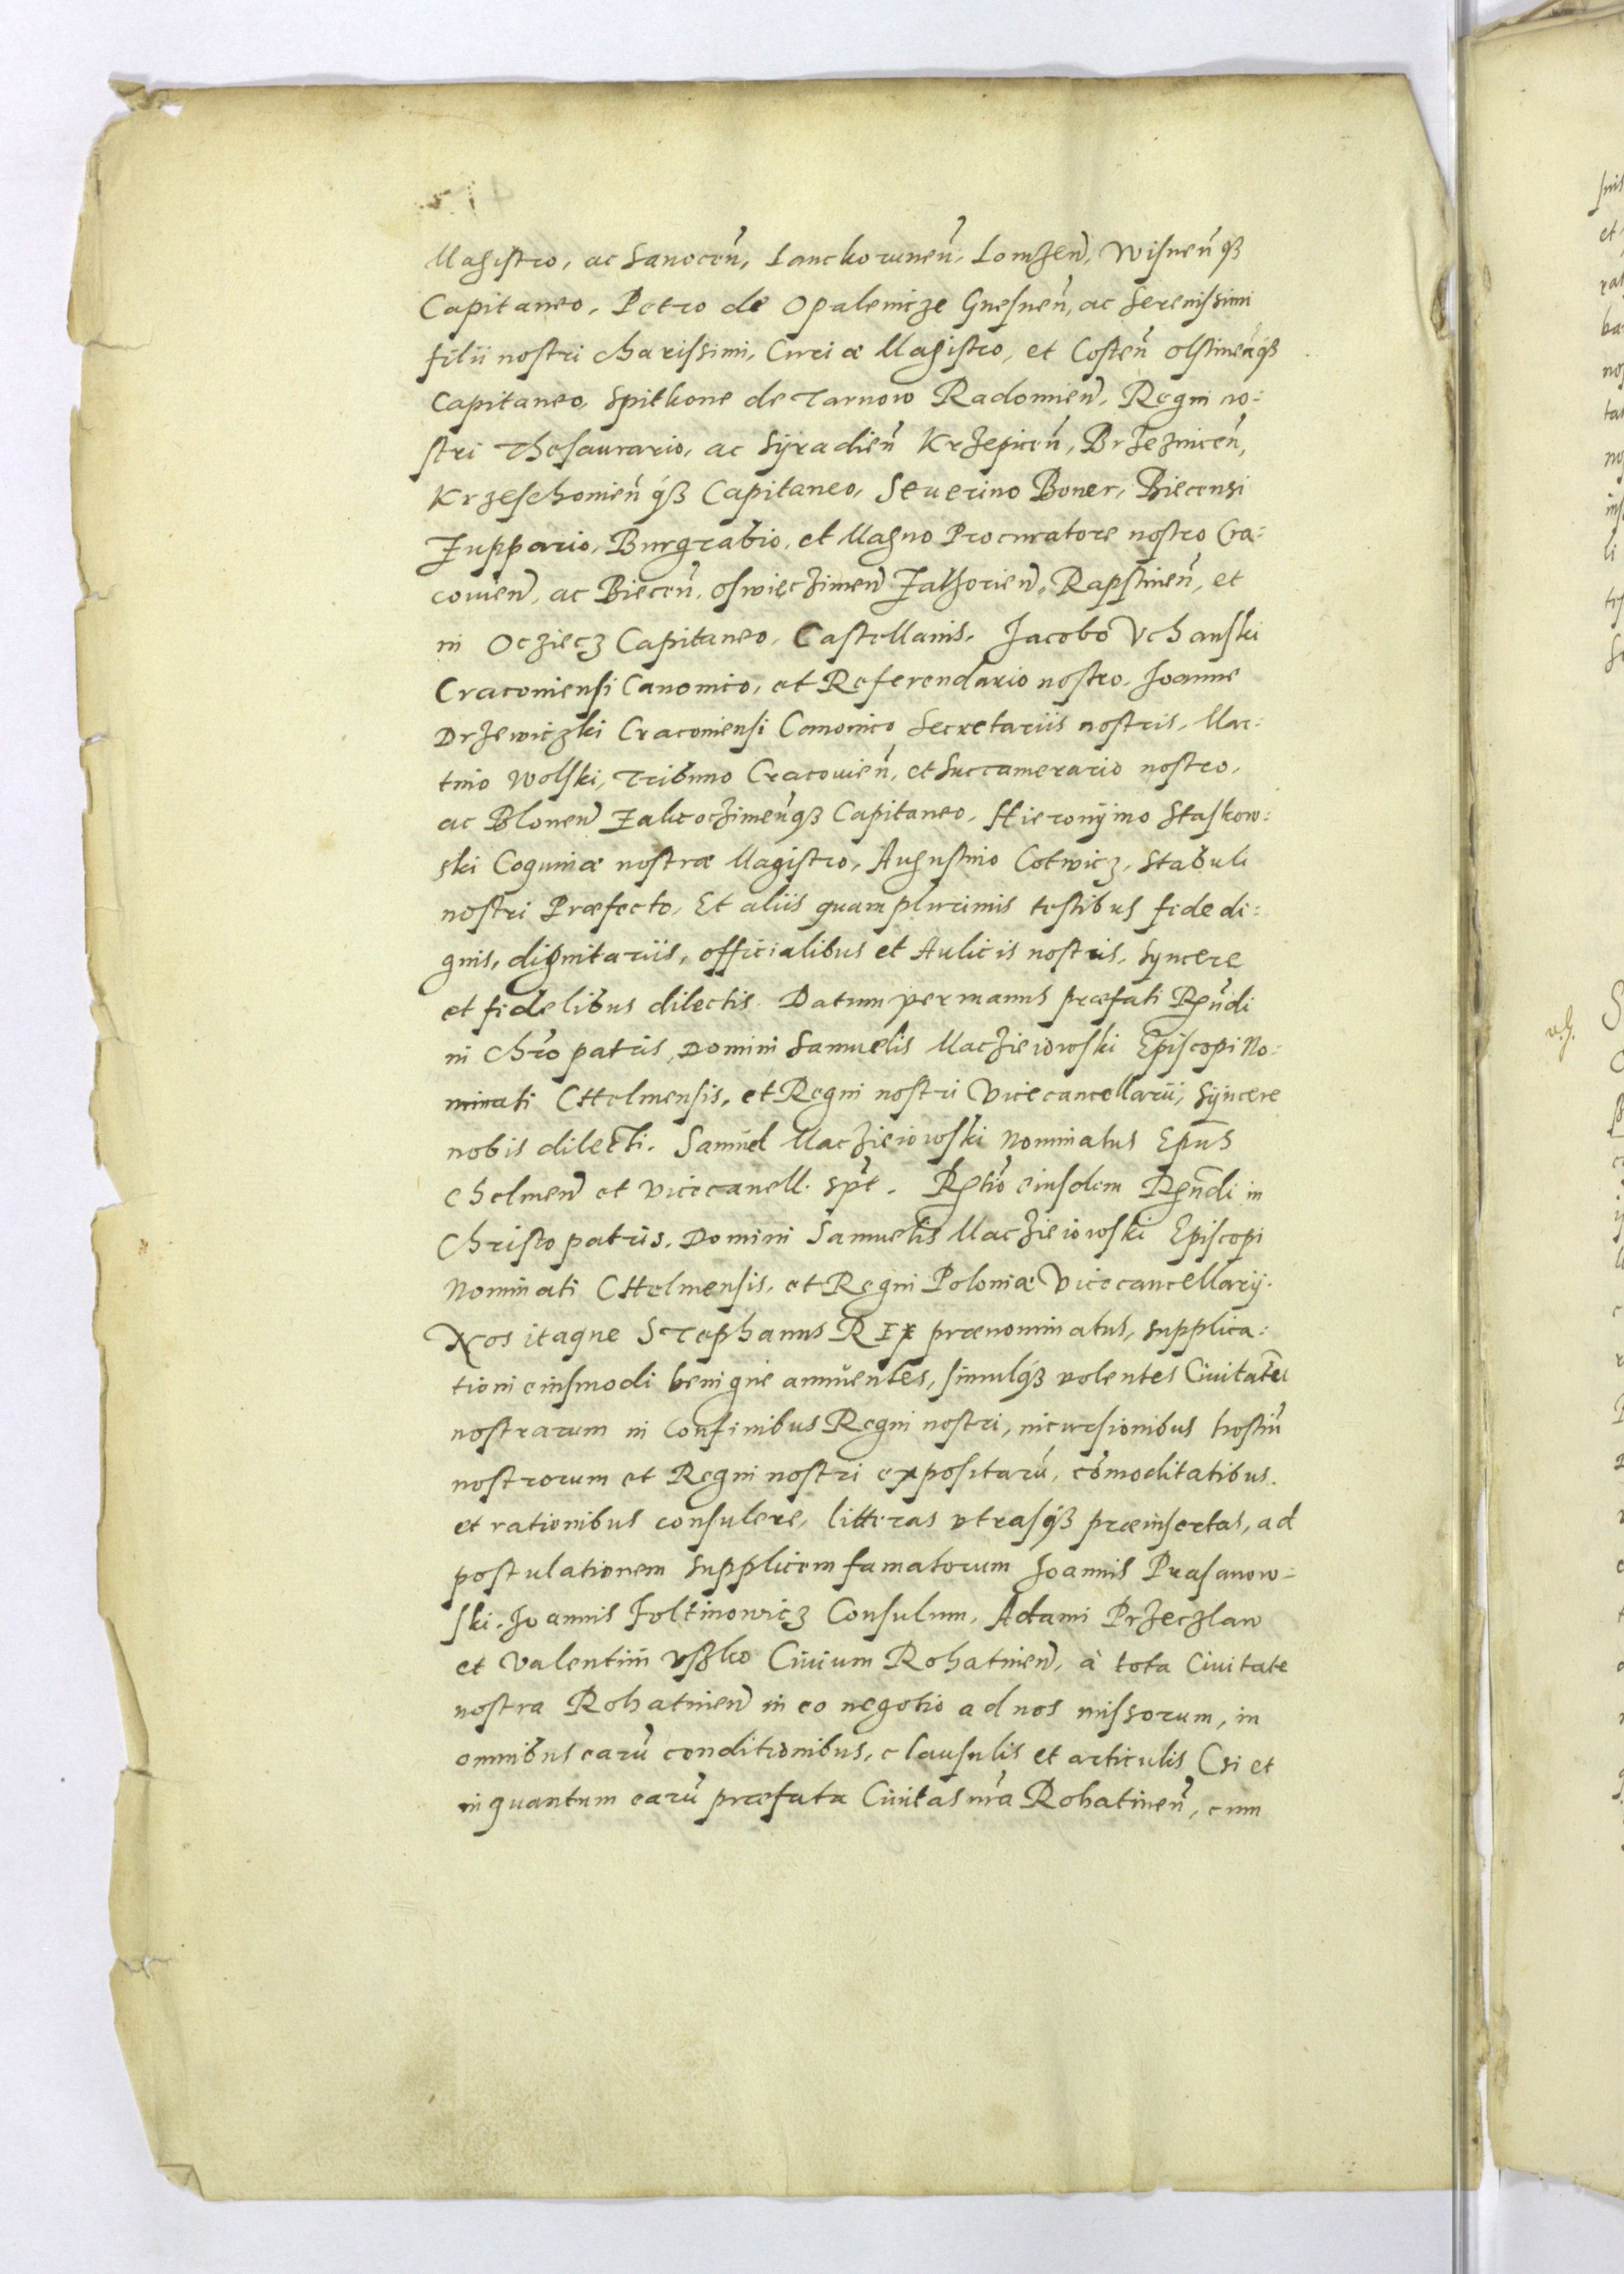 Magistro, ac Sanocen̄, Lanckorunen̄, Lomzen̄, Wisnen̄qȝ
Capitaneo, Petro de Opalenicze Gnesnen̄, ac Serenissimi
filii nostri charissimi, Curiæ Magistro, et Costen̄ Olstinen̄qȝ
Capitaneo, Spitkone de Tarnow Radomien̄, Regni no:
stri Thesaurario, ac Syradien̄ Krzepicen̄, Brzeznicen̄,
Krzeschowien̄qȝ Capitaneo, Seuerino Boner, Biecensi
Zuppario, Burgrabio, et Magno Procuratore nostro Cra:
couien̄, ac Biecen̄, Oswięczimen̄ Zathorien̄, Rapstinen̄, et
in Ocziecz Capitaneo, Castellanis, Jacobo Vchanski
Cracouiensi Canonico, et Referendario nostro, Joanne
Drzewiczki Cracouiensi Canonico Secretariis nostris, Mar:
tino Wolski, Tribuno Cracouien̄, et Succamerario nostro,
ac Blonen̄ Zakroczimen̄qȝ Capitaneo, Hieronymo Staskow:
ski Coquinæ nostræ Magistro, Augustino Cotwicz, Stabuli
nostri Præfecto, Et aliis quamplurimis testibus fide di:
gnis, dignitariis, officialibus et Aulicis nostris, syncere
et fidelibus dilectis. Datum per manus præfati Rn̄di
in Chr̄o patris, Domini Samuelis Macziewski Episcopi No:
minati CHelmensis, et Regni nostri Vicecancellarii, syncere
nobis dilecti. Samuel Macziewski Nominatus Ep̄us
Chelmen̄ et vicecanell. sp̄t. Rel̄tio eiusdem Rn̄di in
Christo patris, Domini Samuelis Macziewski Episcopi
Nominati CHelmensis, et Regni Poloniæ Vicecancellarij.
Nos itaque STephanus REX prænominatus, supplica:
tioni eiusmodi benigne annuentes, simulqȝ volentes Ciuitatū
nostrarum in confinibus Regni nostri, incursionibus hostiū
nostrorum et Regni nostri expositarū, cōmoditatibus
et rationibus consulere, litteras vtrasqȝ præinsertas, ad
postulationem supplicem famatorum Joannis Prasanow:
ski, Joannis Foltinowicz Consulum, Adami Przeczlaw
et Valentini Vszko Ciuium Rohatinen̄, à tota Ciuitate
nostra Rohatinen̄ in eo negotio ad nos missorum, in
omnibus earū conditionibus, clausulis et articulis (si et
in quantum earū præfata Ciuitas nr̄a Rohatinen̄, cum